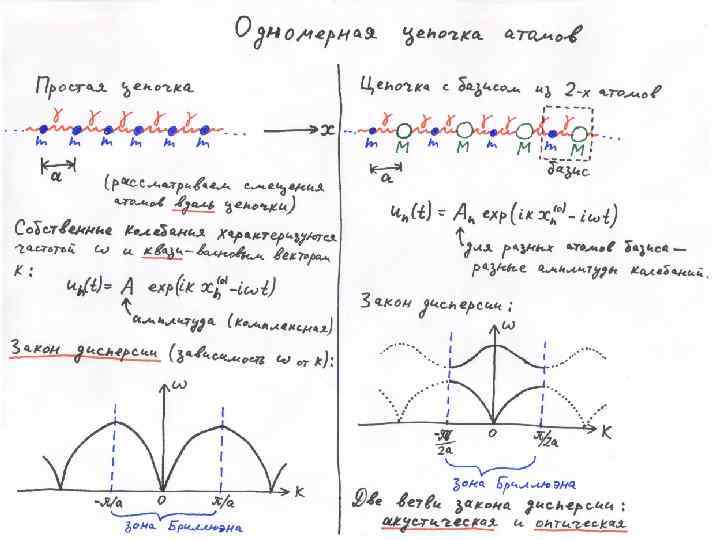 Одномерная цепочка атомов
Простая цепочка
γ γ γ γ γ
m m m m m m
x
a
(рассматриваем смещения
атомов вдоль цепочки)
Собственные колебания характеризуются
частотой ω и квази-волновым вектором
k:
uₙ(t) = A exp(ik xₙ⁽⁰⁾ - iωt)
амплитуда (комплексная)
Закон дисперсии (зависимость ω от k):
ω
-π/a 0 π/a k
зона Бриллюэна
Цепочка с базисом из 2-х атомов
γ γ γ γ γ γ γ
m M m M m M m M
a
базис
uₙ(t) = Aₙ exp(ik xₙ⁽⁰⁾ - iωt)
для разных атомов базиса —
разные амплитуды колебаний.
Закон дисперсии:
ω
-π/2a 0 π/2a k
зона Бриллюэна
Две ветви закона дисперсии:
акустическая и оптическая